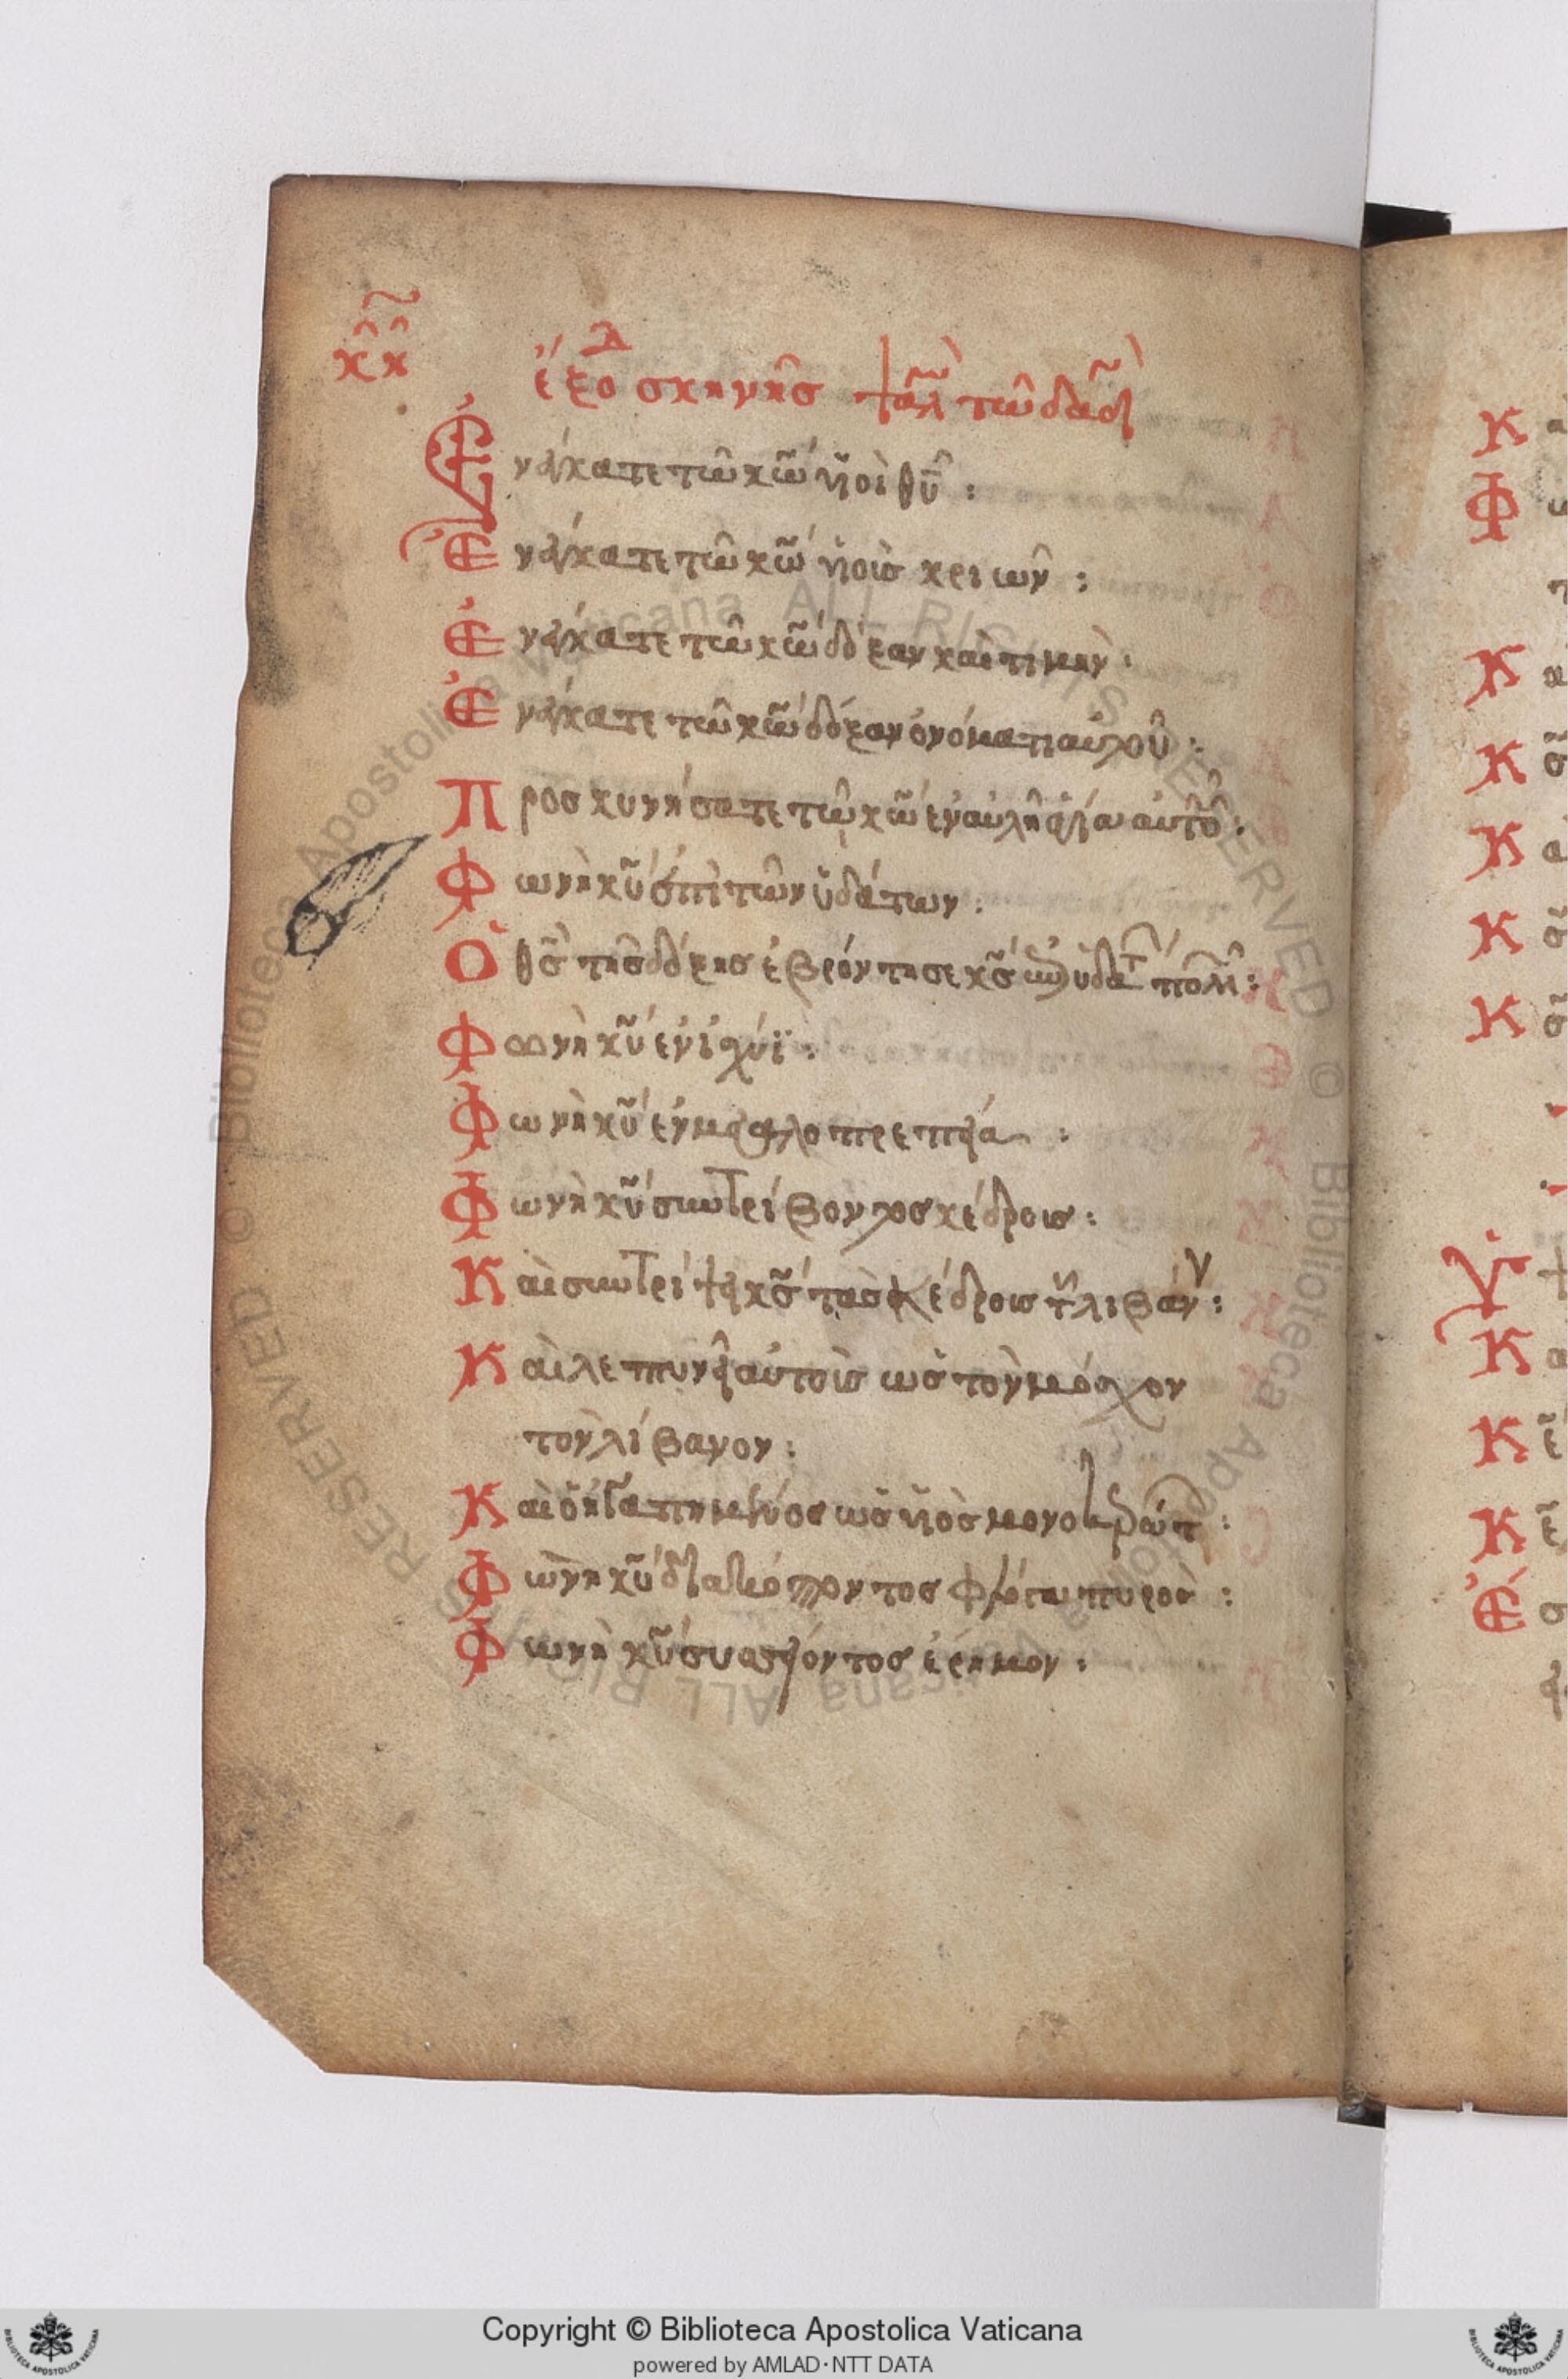 κη
ἐξοδ σκηνῆς ψαλ τῶ δαδ
Ἐνέγκατε τῶ κω υἱοὶ θυ:
Ἐνέγκατε τῶ κω υἱοὺς κριῶν:
Ἐνέγκατε τῶ κω δόξαν καὶ τιμὴν:
Ἐνέγκατε τῶ κω δόξαν ὀνόματι αὐτοῦ:
Προσκυνήσατε τῶ κω ἐν αὐλῆ ἁγία αὐτοῦ:
Φωνὴ κυ ἐπὶ τῶν ὑδάτων:
Ὁ θς τῆς δόξης ἐβρόντησε κς ἐπὶ ὑδατ πολλ:
Φωνὴ κυ ἐν ἰσχύϊ:
Φωνὴ κυ ἐν μεγαλοπρεπεία:
Φωνὴ κυ συντρίβοντος κέδροις:
Καὶ συντρίψει κς τὰς κέδροις τοῦ λιβάν:
Καὶ λεπτυνεῖ αὐτοὺς ὡς τὸν μόσχον
τὸν λίβανον:
Καὶ ὁ ἠγαπημένος ὡς υἱὸς μονοκερώτ:
Φωνὴ κυ διακόπτοντος φλόγα πυρὸς:
Φωνὴ κυ συσσείοντος ἔρημον:
Κ
Φ
Κ
Κ
Κ
Κ
Κ
Κ
Κ
Κ
Ἐ
Copyright © Biblioteca Apostolica Vaticana
powered by AMLAD·NTT DATA